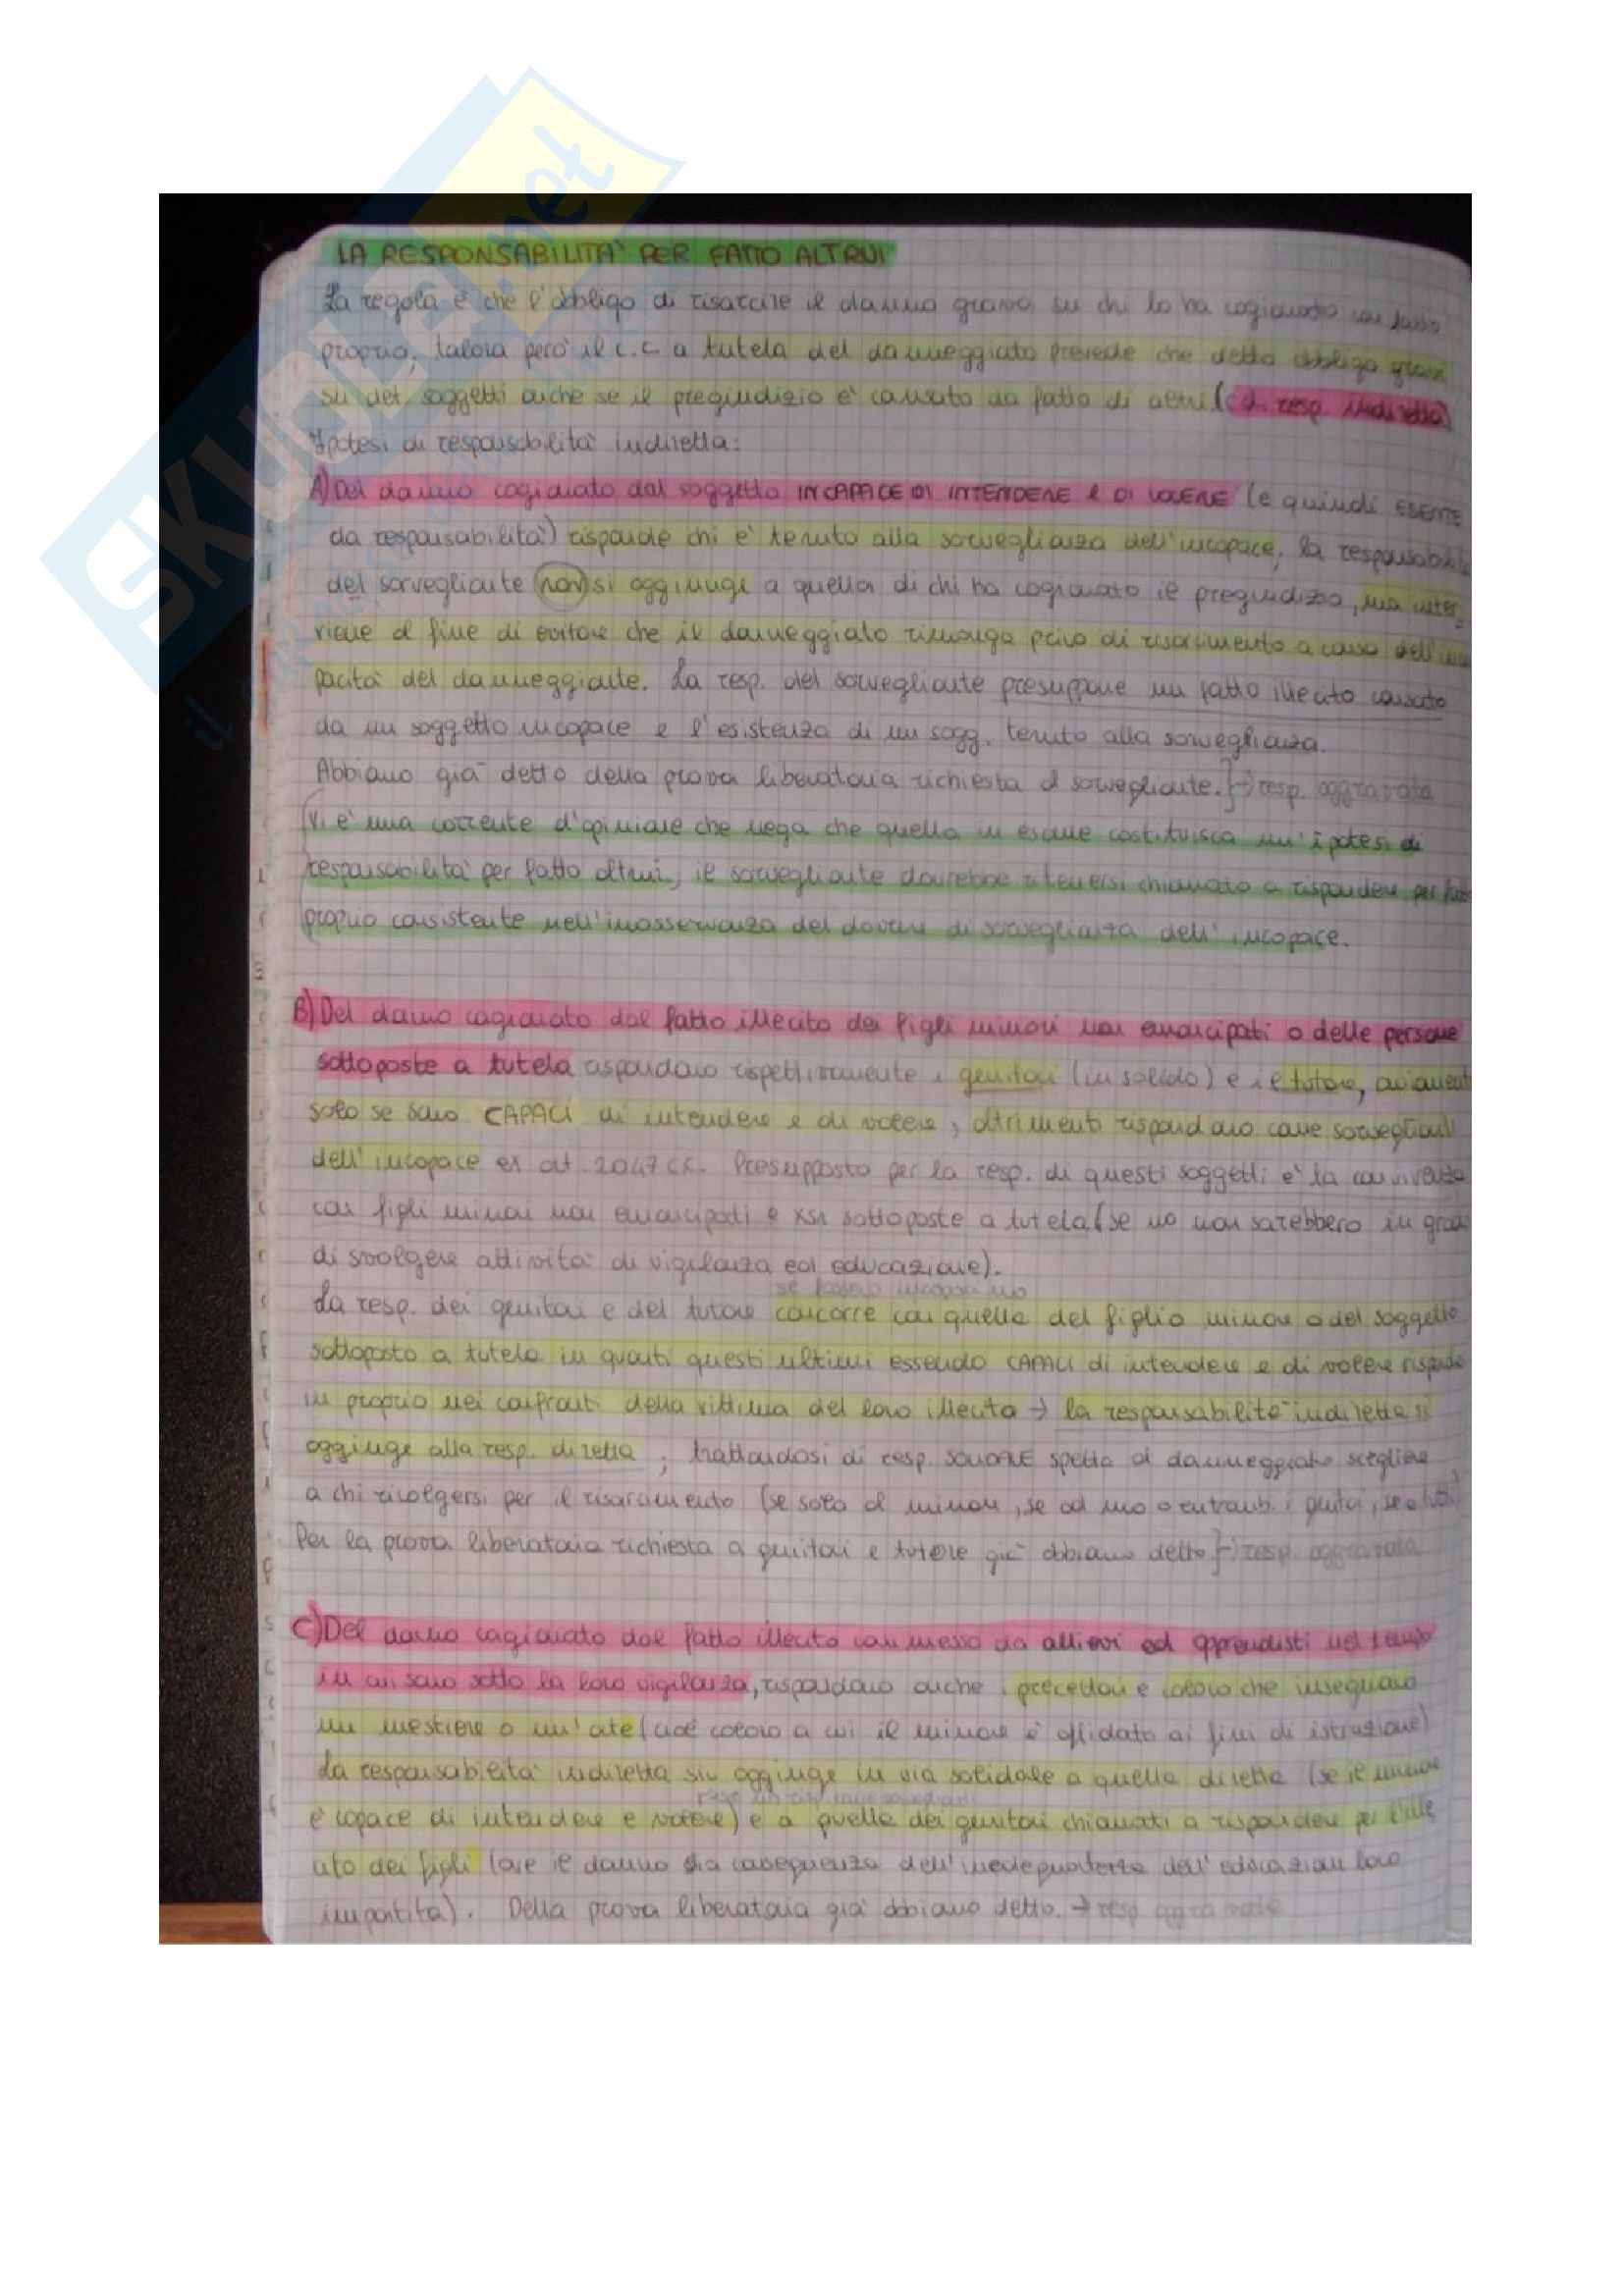 SKUOLA.net
LA RESPONSABILITÀ PER FATTO ALTRUI
La regola è che l'obbligo di risarcire il danno grava su chi lo ha cagionato con fatto
proprio, talora però il c.c. a tutela del danneggiato prevede che detto obbligo gravi
su det. soggetti anche se il pregiudizio è causato da fatto di altri (c.d. resp. indiretta)
Ipotesi di responsabilità indiretta:
A) Del danno cagionato dal soggetto INCAPACE DI INTENDERE E DI VOLERE (e quindi ESENTE
da responsabilità) risponde chi è tenuto alla sorveglianza dell'incapace, la
del sorvegliante non si aggiunge a quella di chi ha cagionato il pregiudizio, ma inter-
viene al fine di evitare che il danneggiato rimanga privo di risarcimento a causa
pacità del danneggiante. La resp. del sorvegliante presuppone un fatto illecito causato
da un soggetto incapace e l'esistenza di un sogg. tenuto alla sorveglianza.
Abbiamo già detto della prova liberatoria richiesta al sorvegliante.}→ resp. aggravata
Vi è una corrente d'opinione che nega che quella in esame costituisca un'ipotesi di
responsabilità per fatto altrui, il sorvegliante dovrebbe ritenersi chiamato a rispondere per fatto
proprio consistente nell'inosservanza del dovere di sorveglianza dell'incapace.
B) Del danno cagionato dal fatto illecito dei figli minori non emancipati o delle persone
sottoposte a tutela rispondono rispettivamente i genitori (in solido) e il tutore,
solo se sono CAPACI di intendere e di volere, altrimenti rispondono come sorveglianti
dell'incapace ex art. 2047 c.c. Presupposto per la resp. di questi soggetti è la convivenza
con figli minori non emancipati e xsn sottoposte a tutela (se no non sarebbero in grado
di svolgere attività di vigilanza ed educazione).
se fossero incapaci no
La resp. dei genitori e del tutore concorre con quella del figlio minore o del soggetto
sottoposto a tutela in quanti questi ultimi essendo CAPACI di intendere e di volere
in proprio nei confronti della vittima del loro illecito → la responsabilità indiretta si
aggiunge alla resp. diretta; trattandosi di resp. SOLIDALE spetta al danneggiato scegliere
a chi rivolgersi per il risarcimento (se solo al minore, se ad uno o entrambi i genitori,
Per la prova liberatoria richiesta a genitori e tutore già abbiamo detto}→ resp. aggravata
C) Del danno cagionato dal fatto illecito commesso da allievi ed apprendisti nel tempo
in cui sono sotto la loro vigilanza, rispondono anche i precettori e coloro che insegnano
un mestiere o un'arte (cioè coloro a cui il minore è affidato ai fini di istruzione)
La responsabilità indiretta si aggiunge in via solidale a quella diretta (se il minore
è capace di intendere e volere) e a quella dei genitori chiamati a rispondere per l'ille-
cito dei figli (ove il danno sia conseguenza dell'inadeguatezza dell'educazione loro
impartita). Della prova liberatoria già abbiamo detto. → resp. aggravata